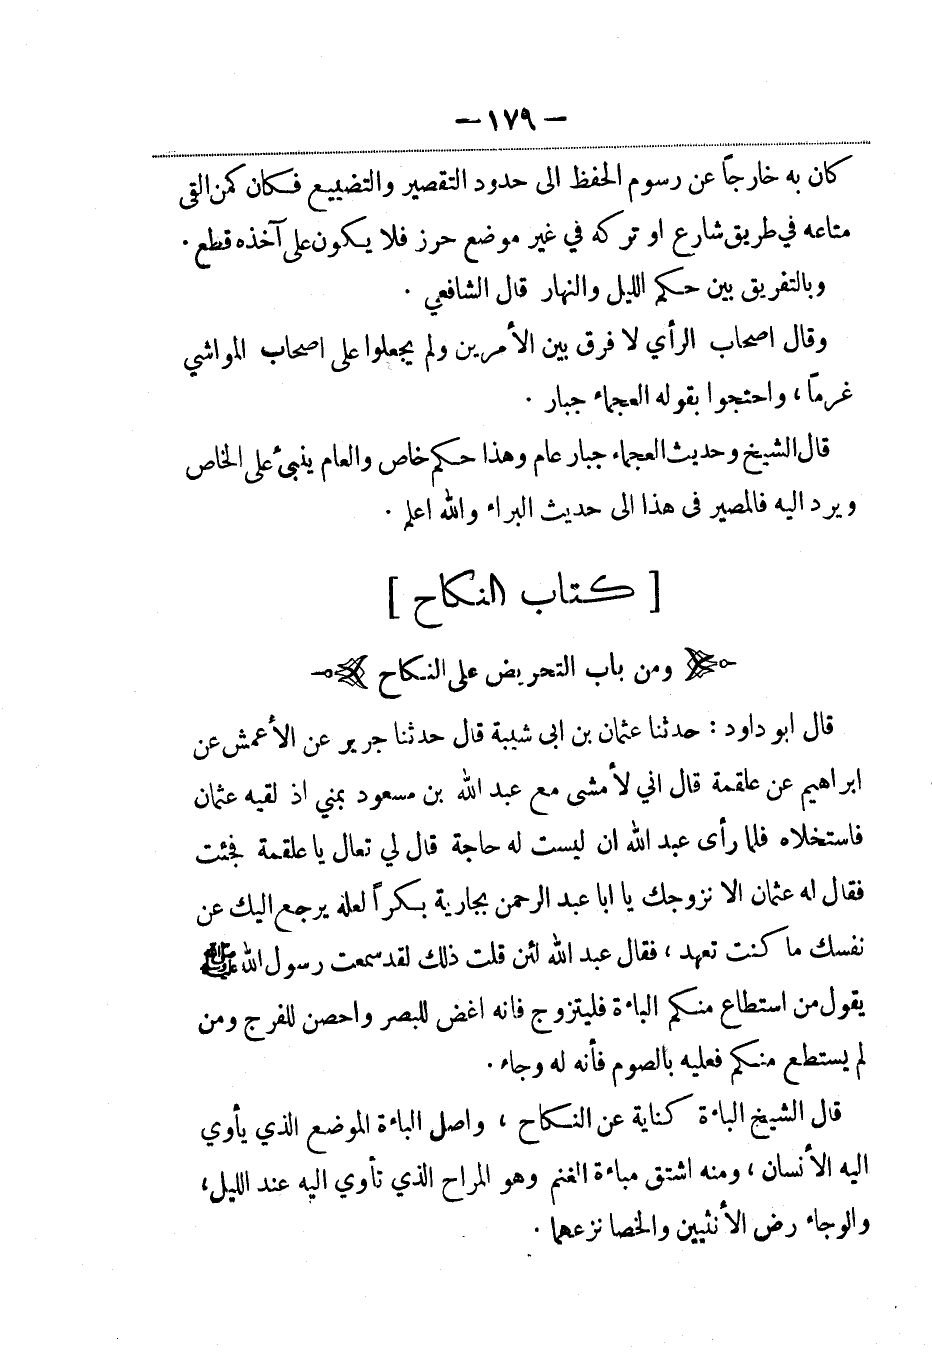 — ١٧٩ —
كان به خارجاً عن رسوم الحفظ الى حدود التقصير والتضييع فكان كمن القى
متاعه في طريق شارع او تركه في غير موضع حرز فلا يكون على آخذه قطع .
وبالتفريق بين حكم الليل والنهار قال الشافعي .
وقال اصحاب الرأي لا فرق بين الأمرين ولم يجعلوا على اصحاب المواشي
غرماً ، واحتجوا بقوله العجماء جبار .
قال الشيخ وحديث العجماء جبار عام وهذا حكم خاص والعام ينبئ على الخاص
ويرد اليه فالمصير في هذا الى حديث البراء والله اعلم .
[ كتاب النكاح ]
ومن باب التحريض على النكاح
قال ابو داود : حدثنا عثمان بن ابى شيبة قال حدثنا جرير عن الأعمش عن
ابراهيم عن علقمة قال اني لأمشى مع عبد الله بن مسعود بمني اذ لقيه عثمان
فاستخلاه فلما رأى عبد الله ان ليست له حاجة قال لي تعال يا علقمة فجئت
فقال له عثمان الا نزوجك يا ابا عبد الرحمن بجارية بكراً لعله يرجع اليك عن
نفسك ما كنت تعهد ، فقال عبد الله لئن قلت ذلك لقد سمعت رسول الله ﷺ
يقول من استطاع منكم الباءة فليتزوج فانه اغض للبصر واحصن للفرج ومن
لم يستطع منكم فعليه بالصوم فأنه له وجاء .
قال الشيخ الباءة كناية عن النكاح ، واصل الباءة الموضع الذي يأوي
اليه الأنسان ، ومنه اشتق مباءة الغنم وهو المراح الذي تأوي اليه عند الليل ،
والوجاء رض الأنثيين والخصا نزعهما .